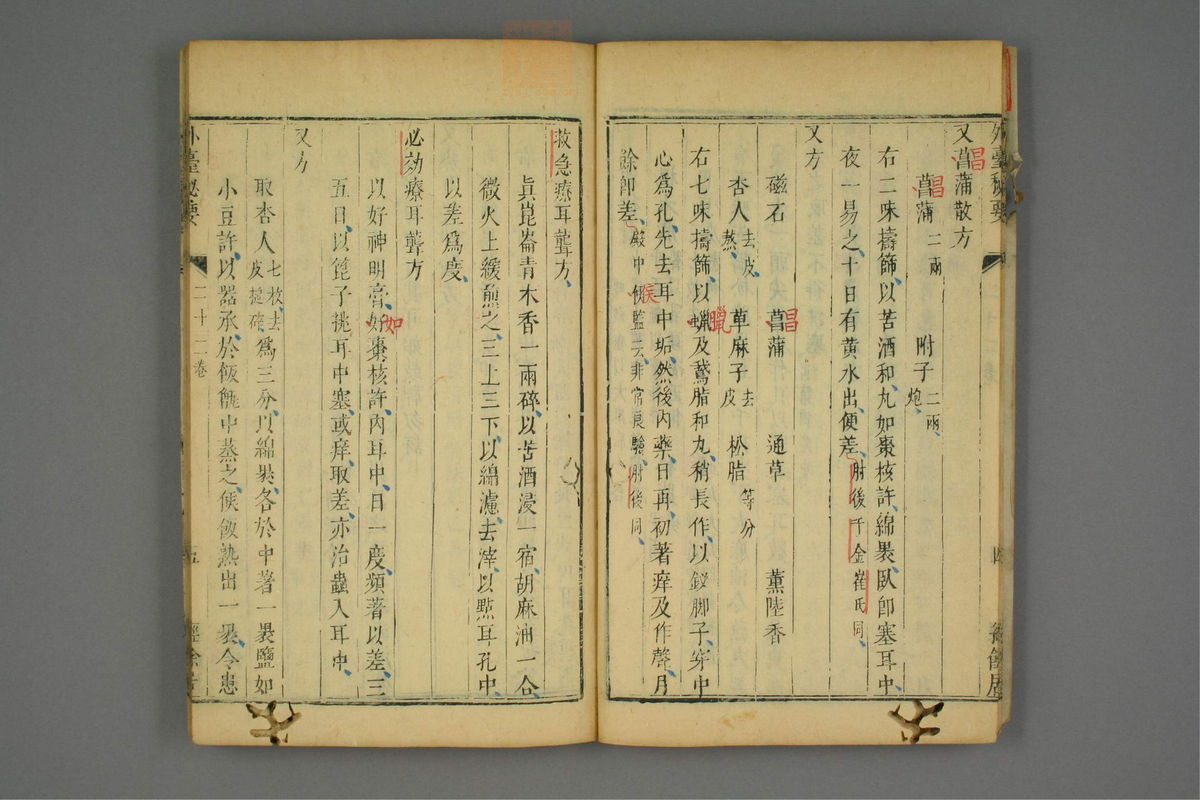 外臺秘要
又菖蒲散方
昌
菖蒲二兩 附子二兩炮
昌
右二味擣篩以苦酒和丸如棗核許綿裹臥即塞耳中
夜一易之十日有黃水出便差肘後千金崔氏同
又方
磁石 菖蒲 通草 薰陸香
昌
杏人去皮熬 草麻子去皮 松脂等分
右七味擣篩以蠟及鵞脂和丸稍長作以釵脚子穿中
臘
心爲孔先去耳中垢然後內藥日再初著痒及作聲月
餘卽差殿中侯監云非常良驗肘後同
侯
救急療耳聾方
眞崑崙青木香一兩碎以苦酒浸一宿胡麻油一合
微火上緩煎之三上三下以綿濾去滓以點耳孔中
以差爲度
必効療耳聾方
以好神明膏好棗核許內耳中日一度頻著以差三
如
五日以篦子挑耳中塞或痒取差亦治蟲入耳中
又方
取杏人七枚去皮搥碎爲三分以綿裹各於中著一裹鹽如
小豆許以器承於飯甑中蒸之候飯熟出一裹令患
外臺秘要
二十二卷
五
經餘居